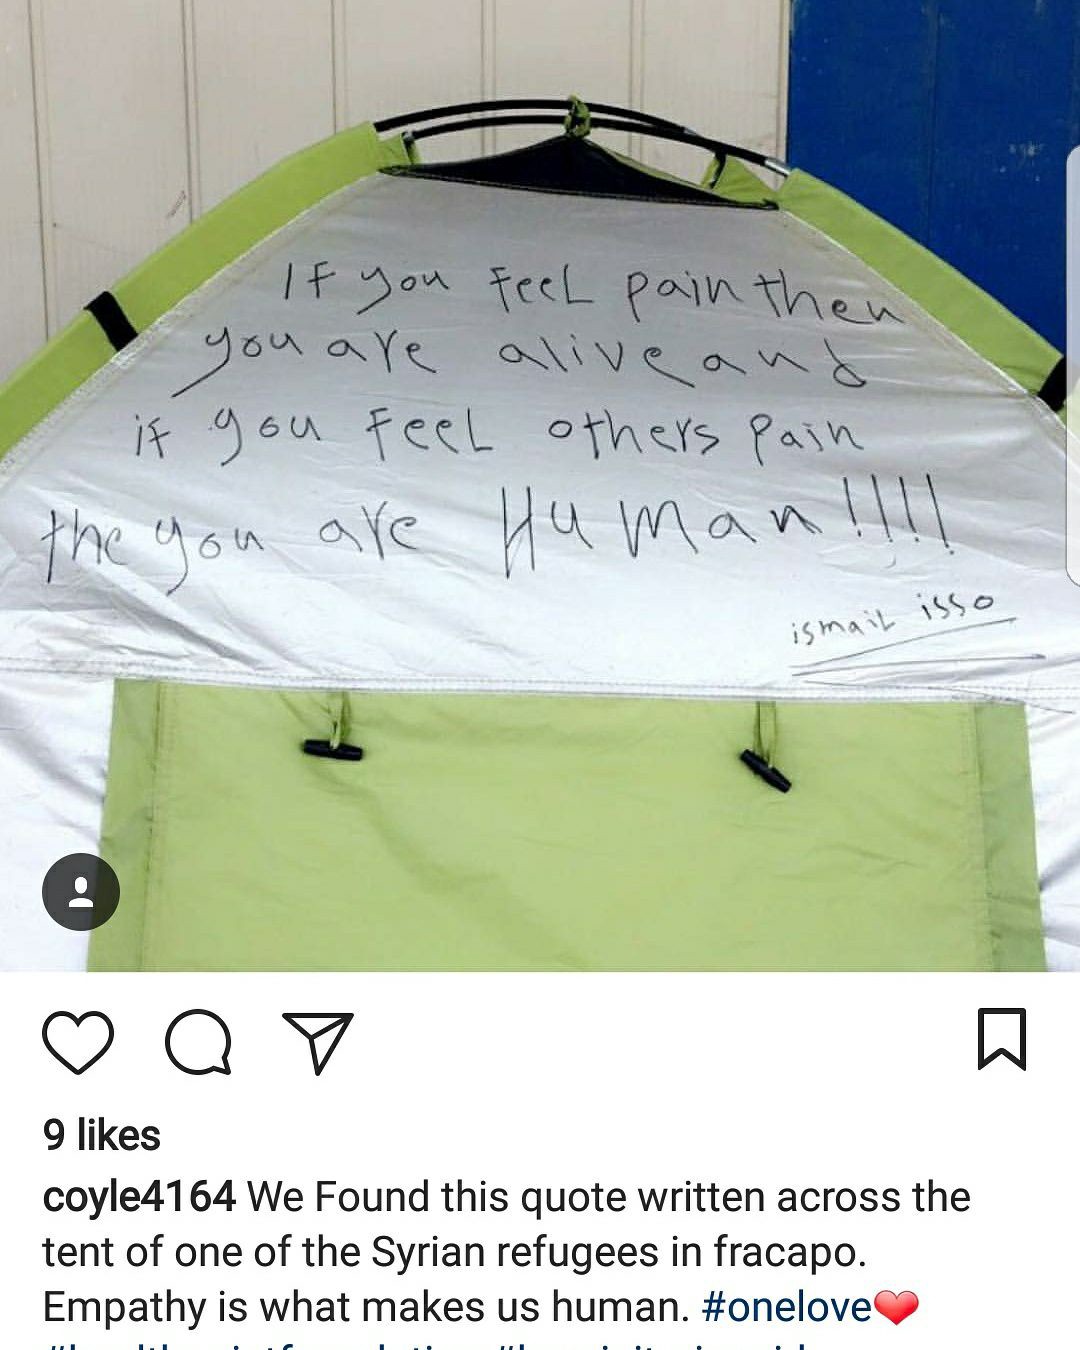 If you feel pain then
you are alive and
if you feel others pain
the you are Human!!!!
ismail isso
9 likes
coyle4164 We Found this quote written across the
tent of one of the Syrian refugees in fracapo.
Empathy is what makes us human. #onelove❤️